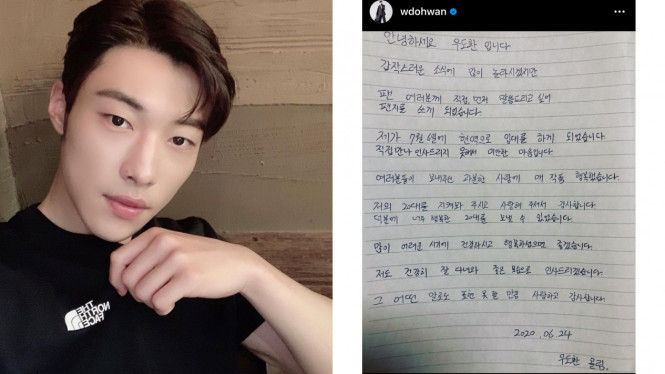 THE
NORTH
FACE
wdohwan
안녕하세요 우도환 입니다
갑작스러운 소식에 많이 놀라시겠지만
팬 여러분께 직접, 먼저 말씀드리고 싶어
편지를 쓰게 되었습니다.
제가 7월 6일에 현역으로 입대를 하게 되었습니다.
직접 만나 인사드리지 못해서 미안한 마음입니다.
여러분들이 보내주신 과분한 사랑에 매 작품 행복했습니다.
저의 20대를 지켜봐 주시고 사랑해 주셔서 감사합니다.
덕분에 너무 행복한 20대를 보낼 수 있었습니다.
많이 어려운 시기에 건강하시고 행복하셨으면 좋겠습니다.
저도 건강히 잘 다녀와 좋은 모습으로 인사드리겠습니다.
그 어떤 말로도 표현 못 할 만큼 사랑하고 감사합니다.
2020.06.24
우도환 올림.